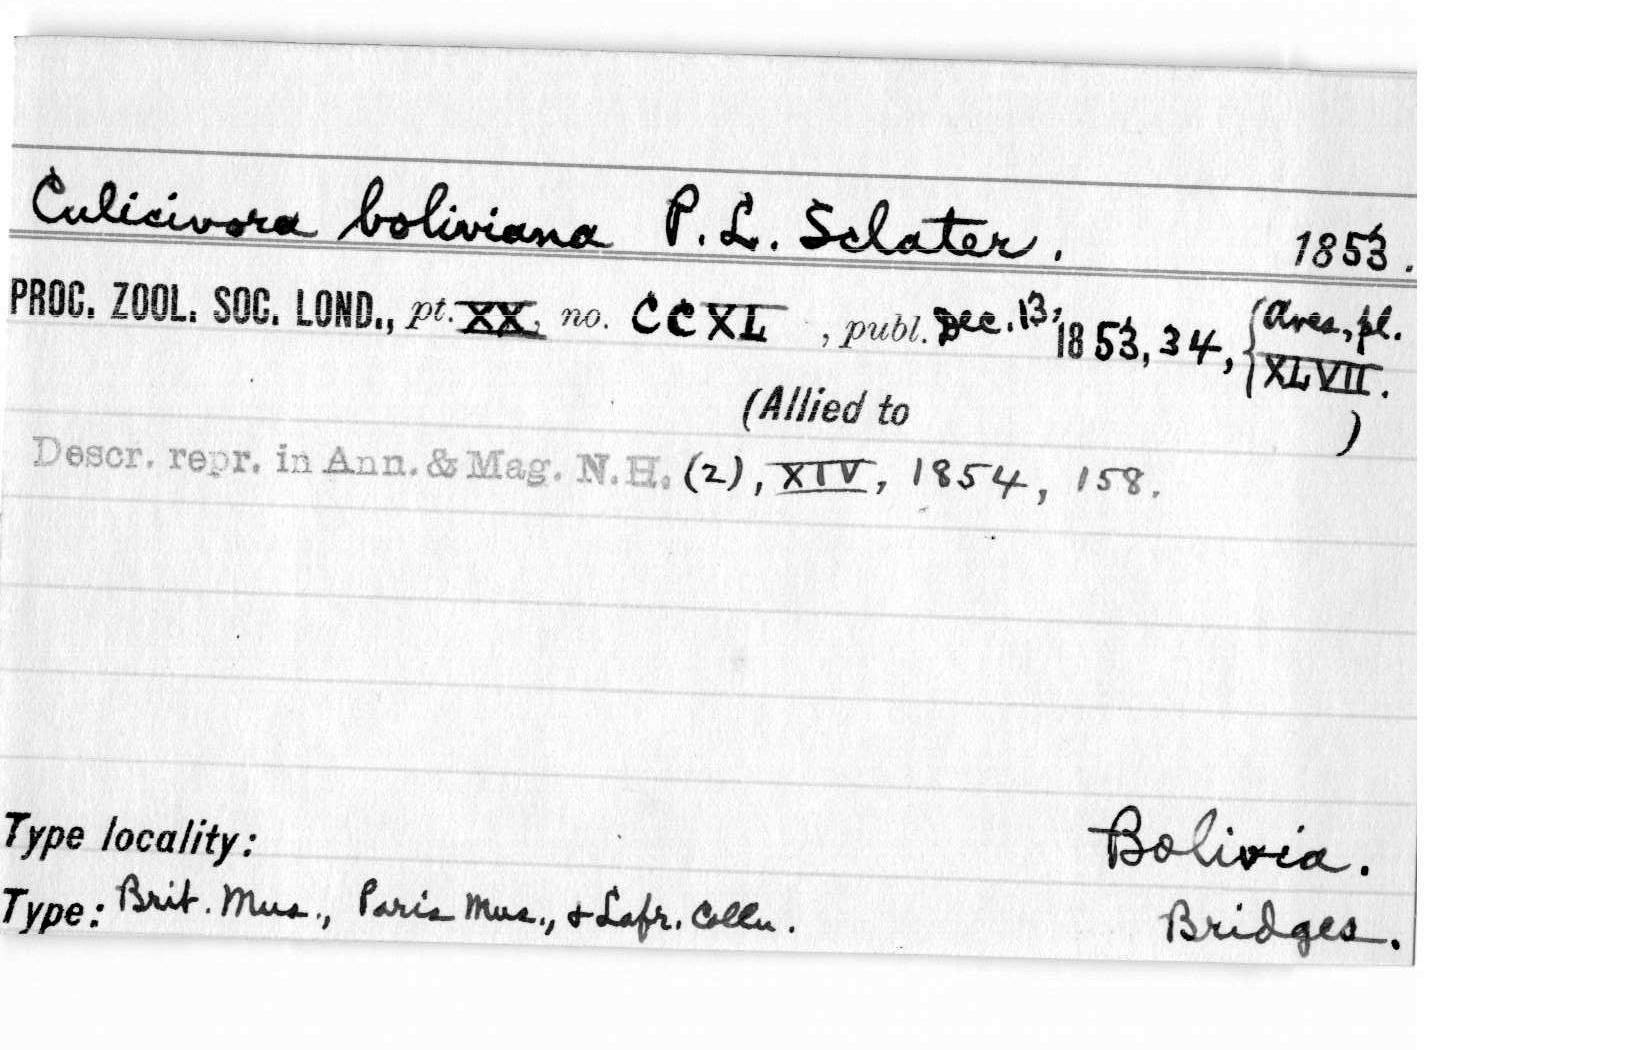 Culicivora boliviana P. L. Sclater. 1853.
PROC. ZOOL. SOC. LOND., pt. XX, no. CCXL, publ. Dec. 13, 1853, 34, { Aves, pl. XLVII.
(Allied to )
Descr. repr. in Ann. & Mag. N. H. (2), XIV, 1854, 158.
Type locality: Bolivia.
Type: Brit. Mus., Paris Mus., & Lafr. Colln. Bridges.